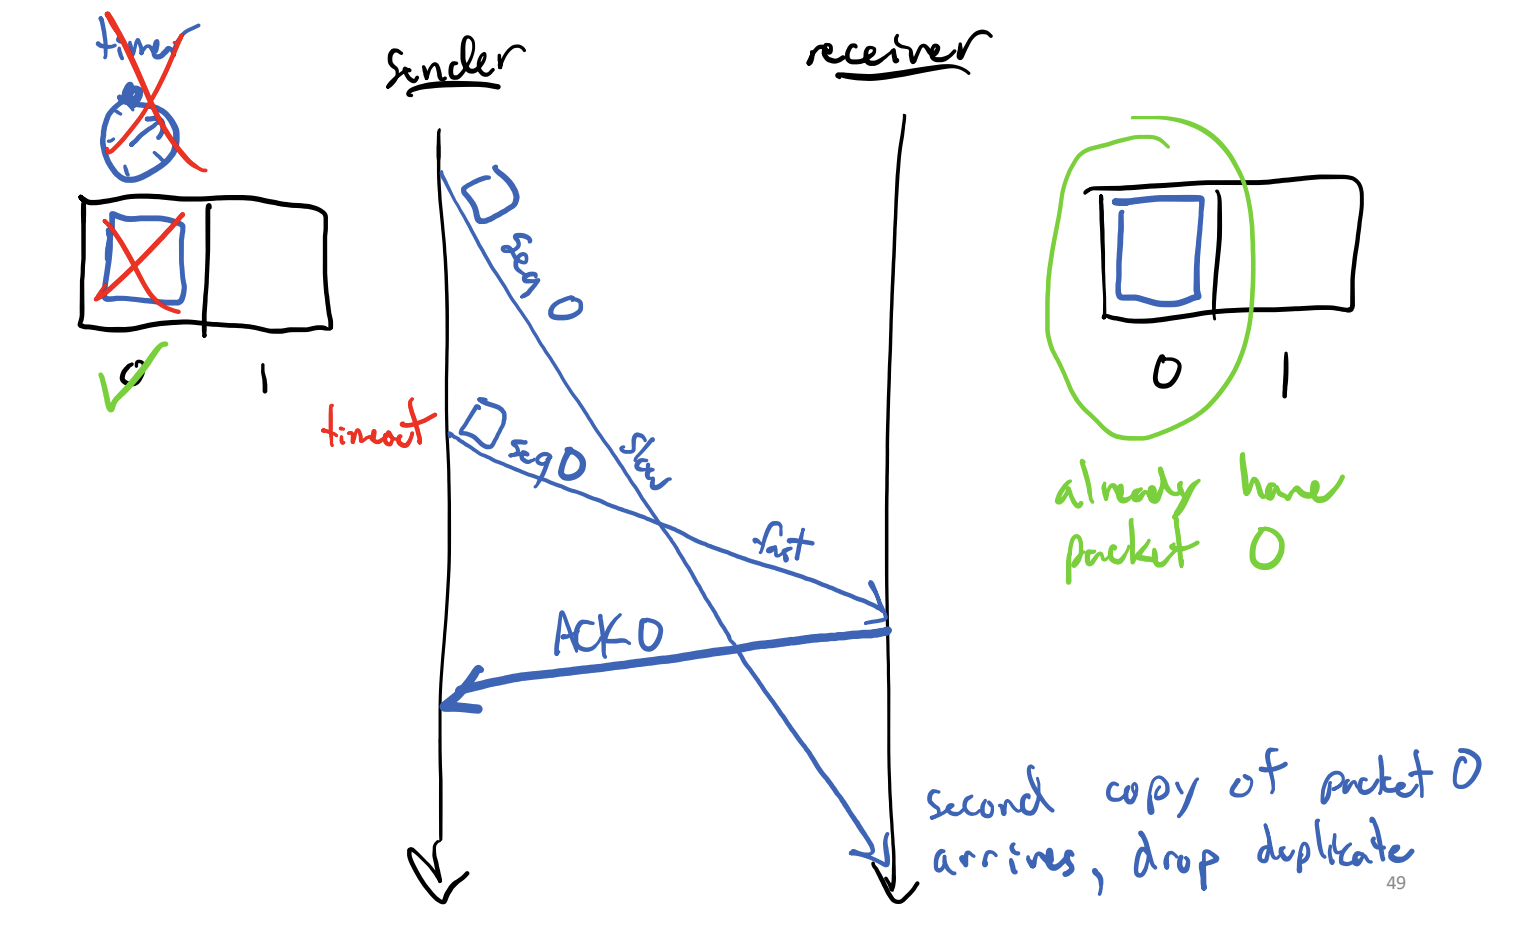 timer
sender
receiver
seq 0
0
1
timeout
seq 0
slow
fast
ACK 0
0
1
already have
packet 0
second copy of packet 0
arrives, drop duplicate
49